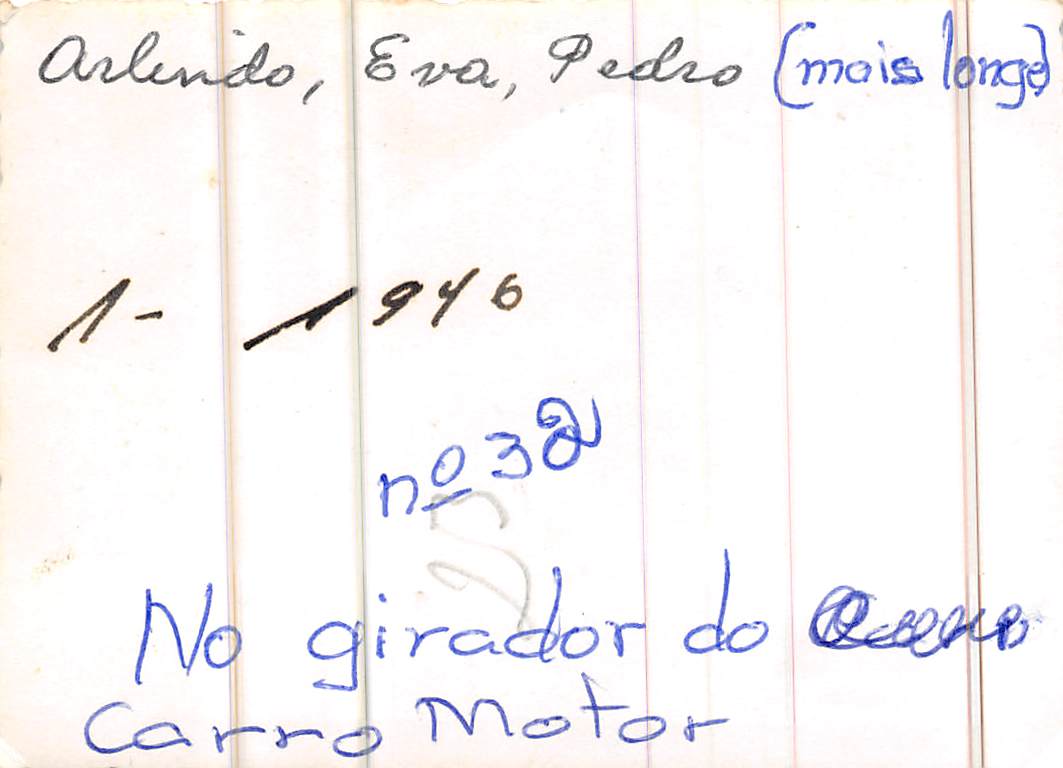 Arlindo, Eva, Pedro (mais longe)
1- 1946
nº 32
No girador do
Carro Motor